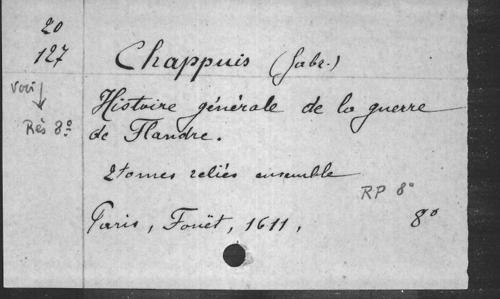 20
127
Chappuis (Gabr.)
voir
Rés 8º
Histoire générale de la guerre
de Flandre.
2 tomes reliés ensemble
RP 8º
Paris, Fouët, 1611, 8º